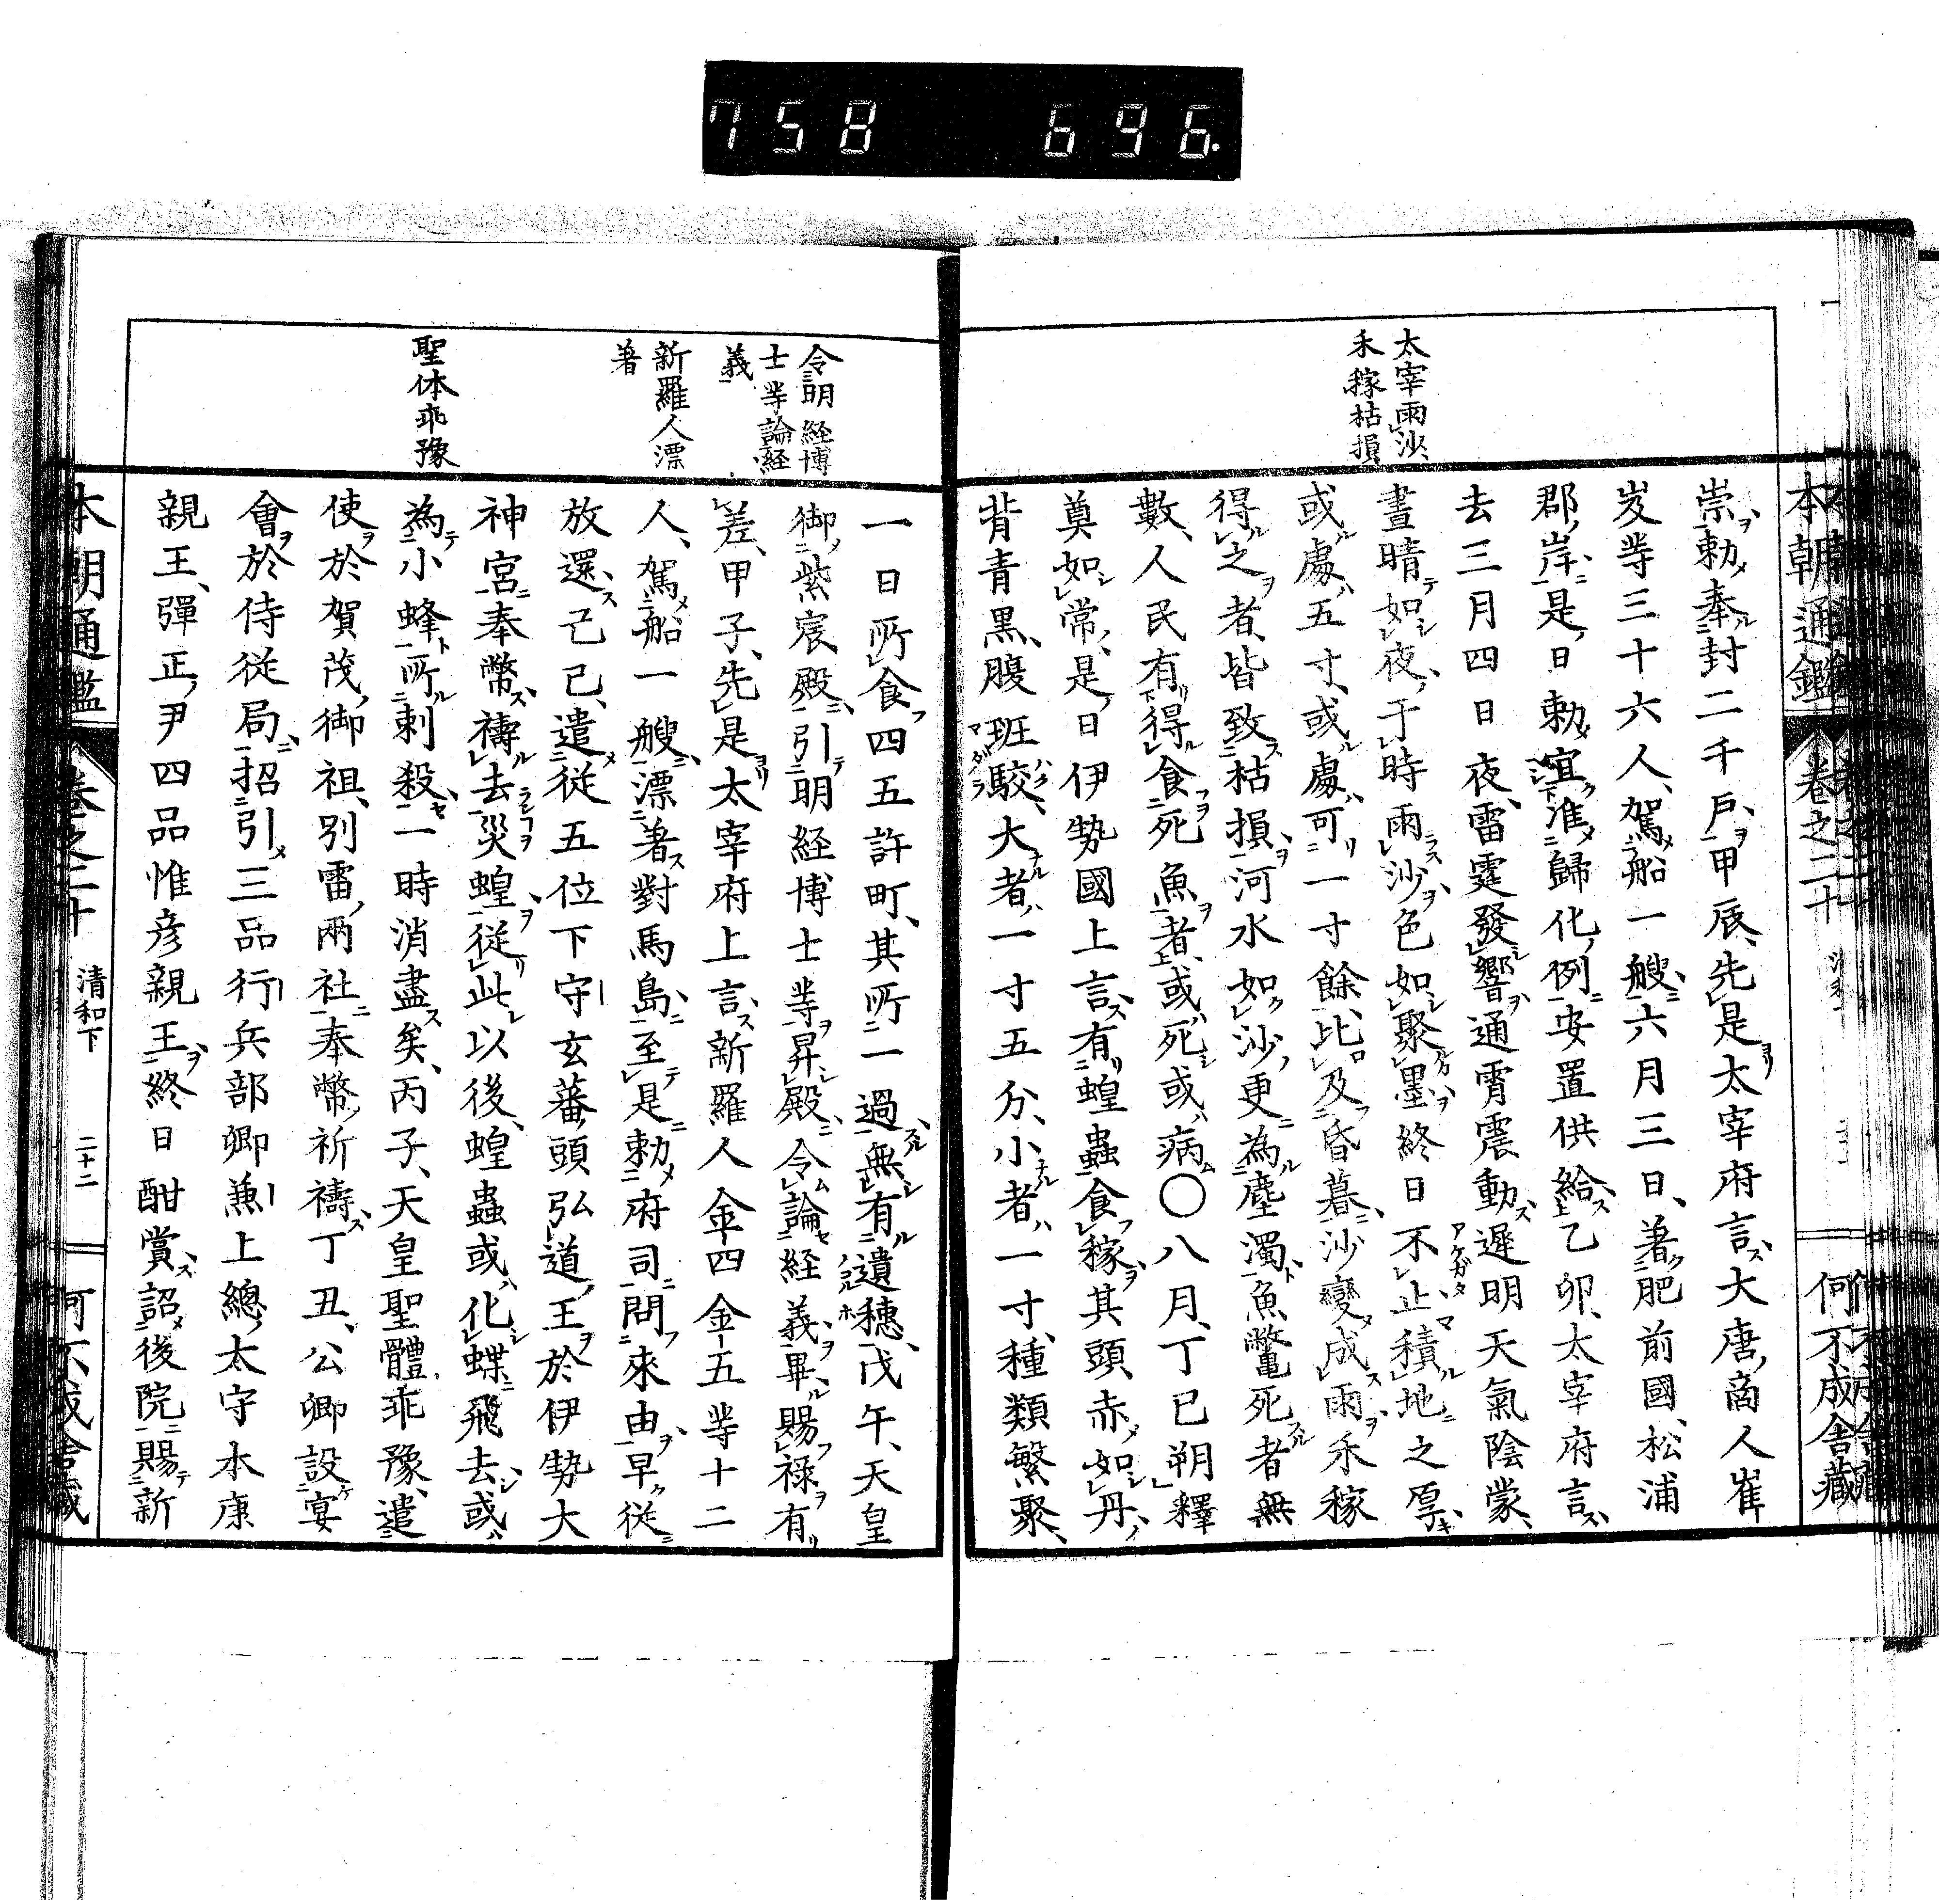 758 696.
本朝通鑑 卷之二十 何不成舎藏
太宰雨沙
禾稼枯損
崇勅奉封二千戸甲辰先是太宰府言大唐商人崔
岌等三十六人駕船一艘六月三日著肥前國松浦
郡岸是日勅宜准歸化例安置供給乙卯太宰府言
去三月四日夜雷霆發響通霄震動遲明天氣陰蒙
晝晴如夜于時雨沙色如聚墨終日不止積地之厚
或處五寸或處可一寸餘比及昏暮沙變成雨禾稼
得之者皆致枯損河水如沙更為塵濁魚鼈死者無
數人民有得食死魚者或死或病〇八月丁巳朔釋
奠如常是日伊勢國上言有蝗蟲食稼其頭赤如丹
背青黒腹班駮大者一寸五分小者一寸種類繁聚
令明経博
士等論経
義
新羅人漂
著
聖体乖豫
一日所食四五許町其所一過無有遺穗戊午天皇
御紫宸殿引明経博士等昇殿令論経義畢賜祿有
差甲子先是太宰府上言新羅人金四金五等十二
人駕船一艘漂著對馬島至是勅府司問來由早從
放還己已遣從五位下守玄蕃頭弘道王於伊勢大
神宮奉幣禱去災蝗從此以後蝗蟲或化蝶飛去或
為小蜂所刺殺一時消盡矣丙子天皇聖體乖豫遣
使於賀茂御祖別雷兩社奉幣祈禱丁丑公卿設宴
會於侍從局招引三品行兵部卿兼上總太守本康
親王彈正尹四品惟彦親王終日酣賞詔後院賜新
本朝通鑑 卷之二十 清和下 二十二 何不成舎藏